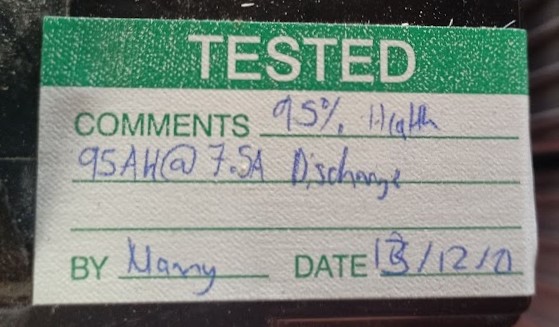 TESTED
COMMENTS 95% Health
95AH@ 7.5A Discharge
BY Manny DATE 13/12/0